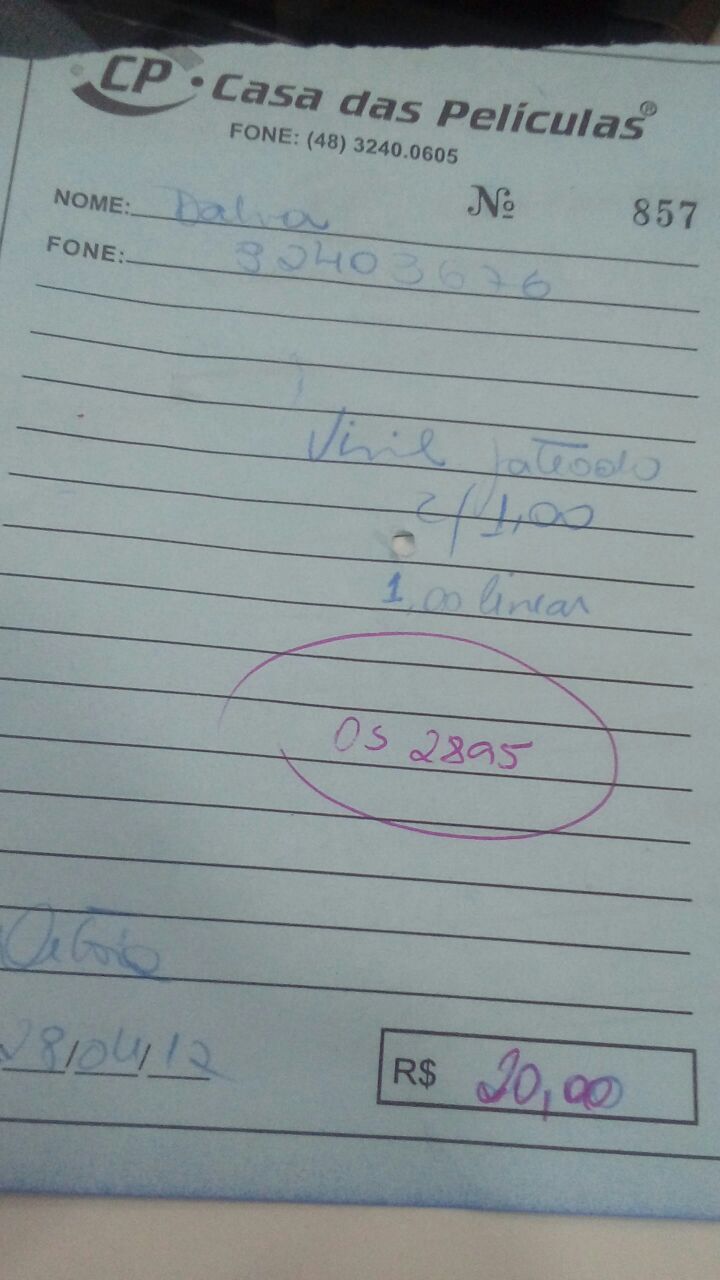 CP • Casa das Películas®
FONE: (48) 3240.0605
NOME: Dalva Nº 857
FONE: 32403676
Vinil Jateado
c/ 1,00
1,00 linear
OS 2895
28/04/12
R$ 20,00